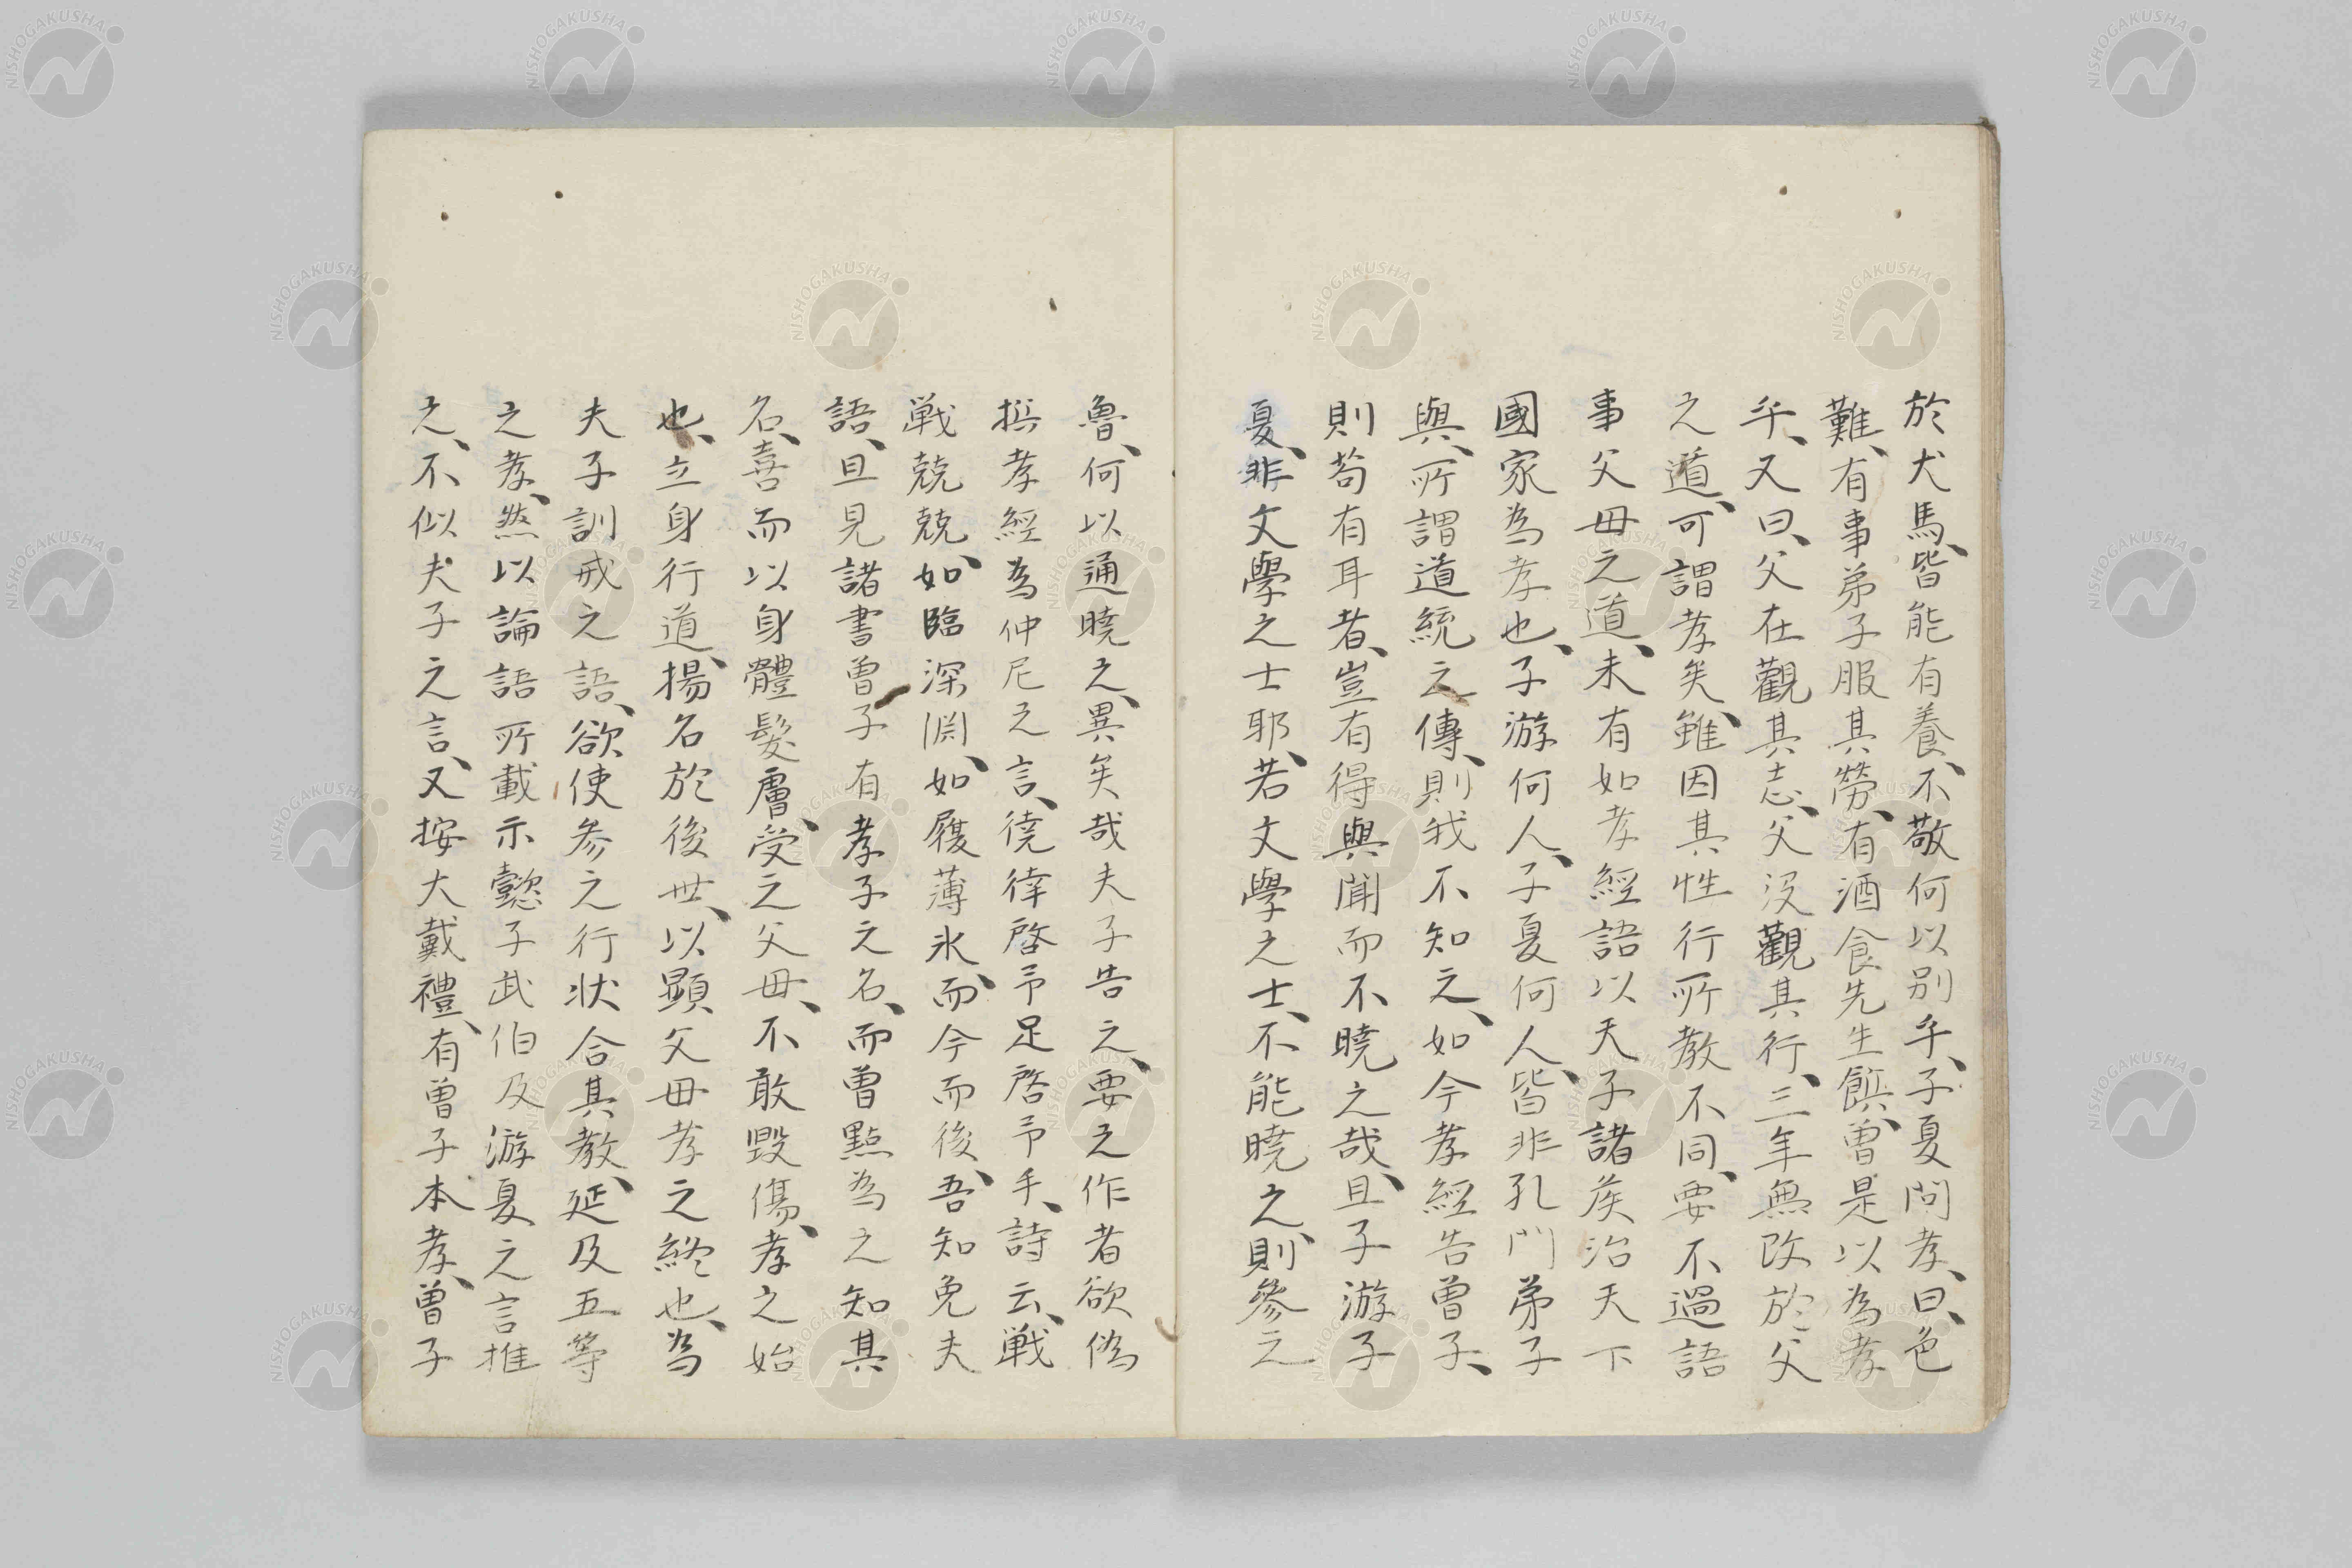 於犬馬、皆能有養、不敬何以別乎、子夏問孝、曰、色
難、有事弟子服其勞、有酒食先生饌、曽是以為孝
乎、又曰、父在觀其志、父没觀其行、三年無改於父
之道、可謂孝矣、雖因其性行所教不同、要不過語
事父母之道、未有如孝經語以天子諸侯治天下
國家為孝也、子游何人、子夏何人、皆非孔門弟子
與、所謂道統之傳、則我不知之、如今孝經告曽子、
則苟有耳者、豈有得與聞而不曉之哉、且子游子
夏、非文學之士耶、若文學之士、不能曉之、則參之
魯、何以通曉之、異矣哉夫子告之、要之作者欲偽
撰孝經為仲尼之言、啓予足啓予手、詩云、戦
戦兢兢、如臨深淵、如履薄氷、而今而後、吾知免夫
語、且見諸書曽子有孝子之名、而曽點為之知其
名、喜而以身體髮膚、受之父母、不敢毀傷、孝之始
也、立身行道、揚名於後世、以顯父母孝之終也、為
夫子訓戒之語、欲使參之行状合其教、延及五等
之孝、然以論語所載示懿子武伯及游夏之言推
之、不似夫子之言、又按大戴禮、有曽子本孝、曽子
NISHOGAKUSHA